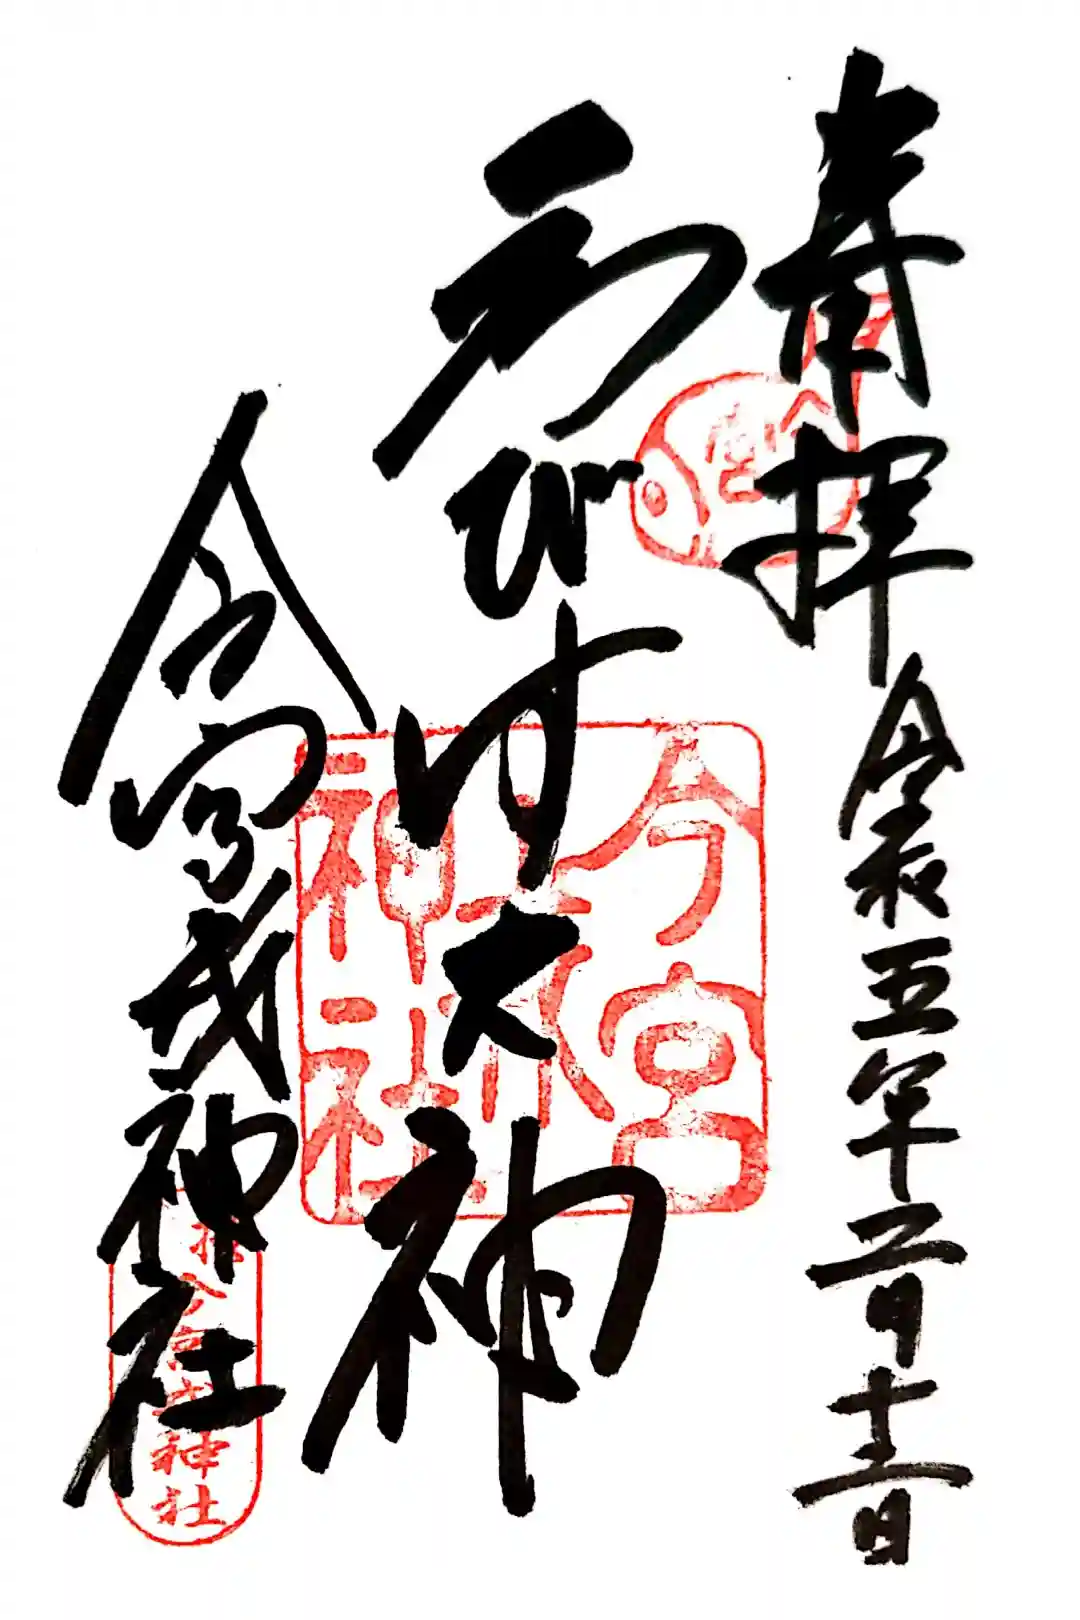 奉拝 令和五年二月十二日
えびす大神
今宮戎神社
今宮
今宮
神社
今宮戎神社